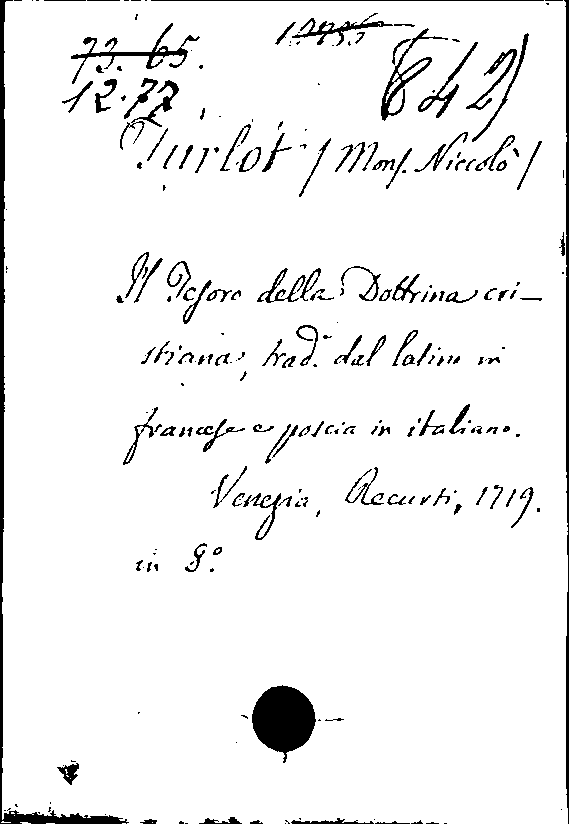 73. 65.
12.77.
Turlot / Mons. Niccolò /
Il Tesoro della Dottrina cri-
stiana, trad. dal latino in
francese e poscia in italiano.
Venezia, Recurti, 1719.
in 8.º